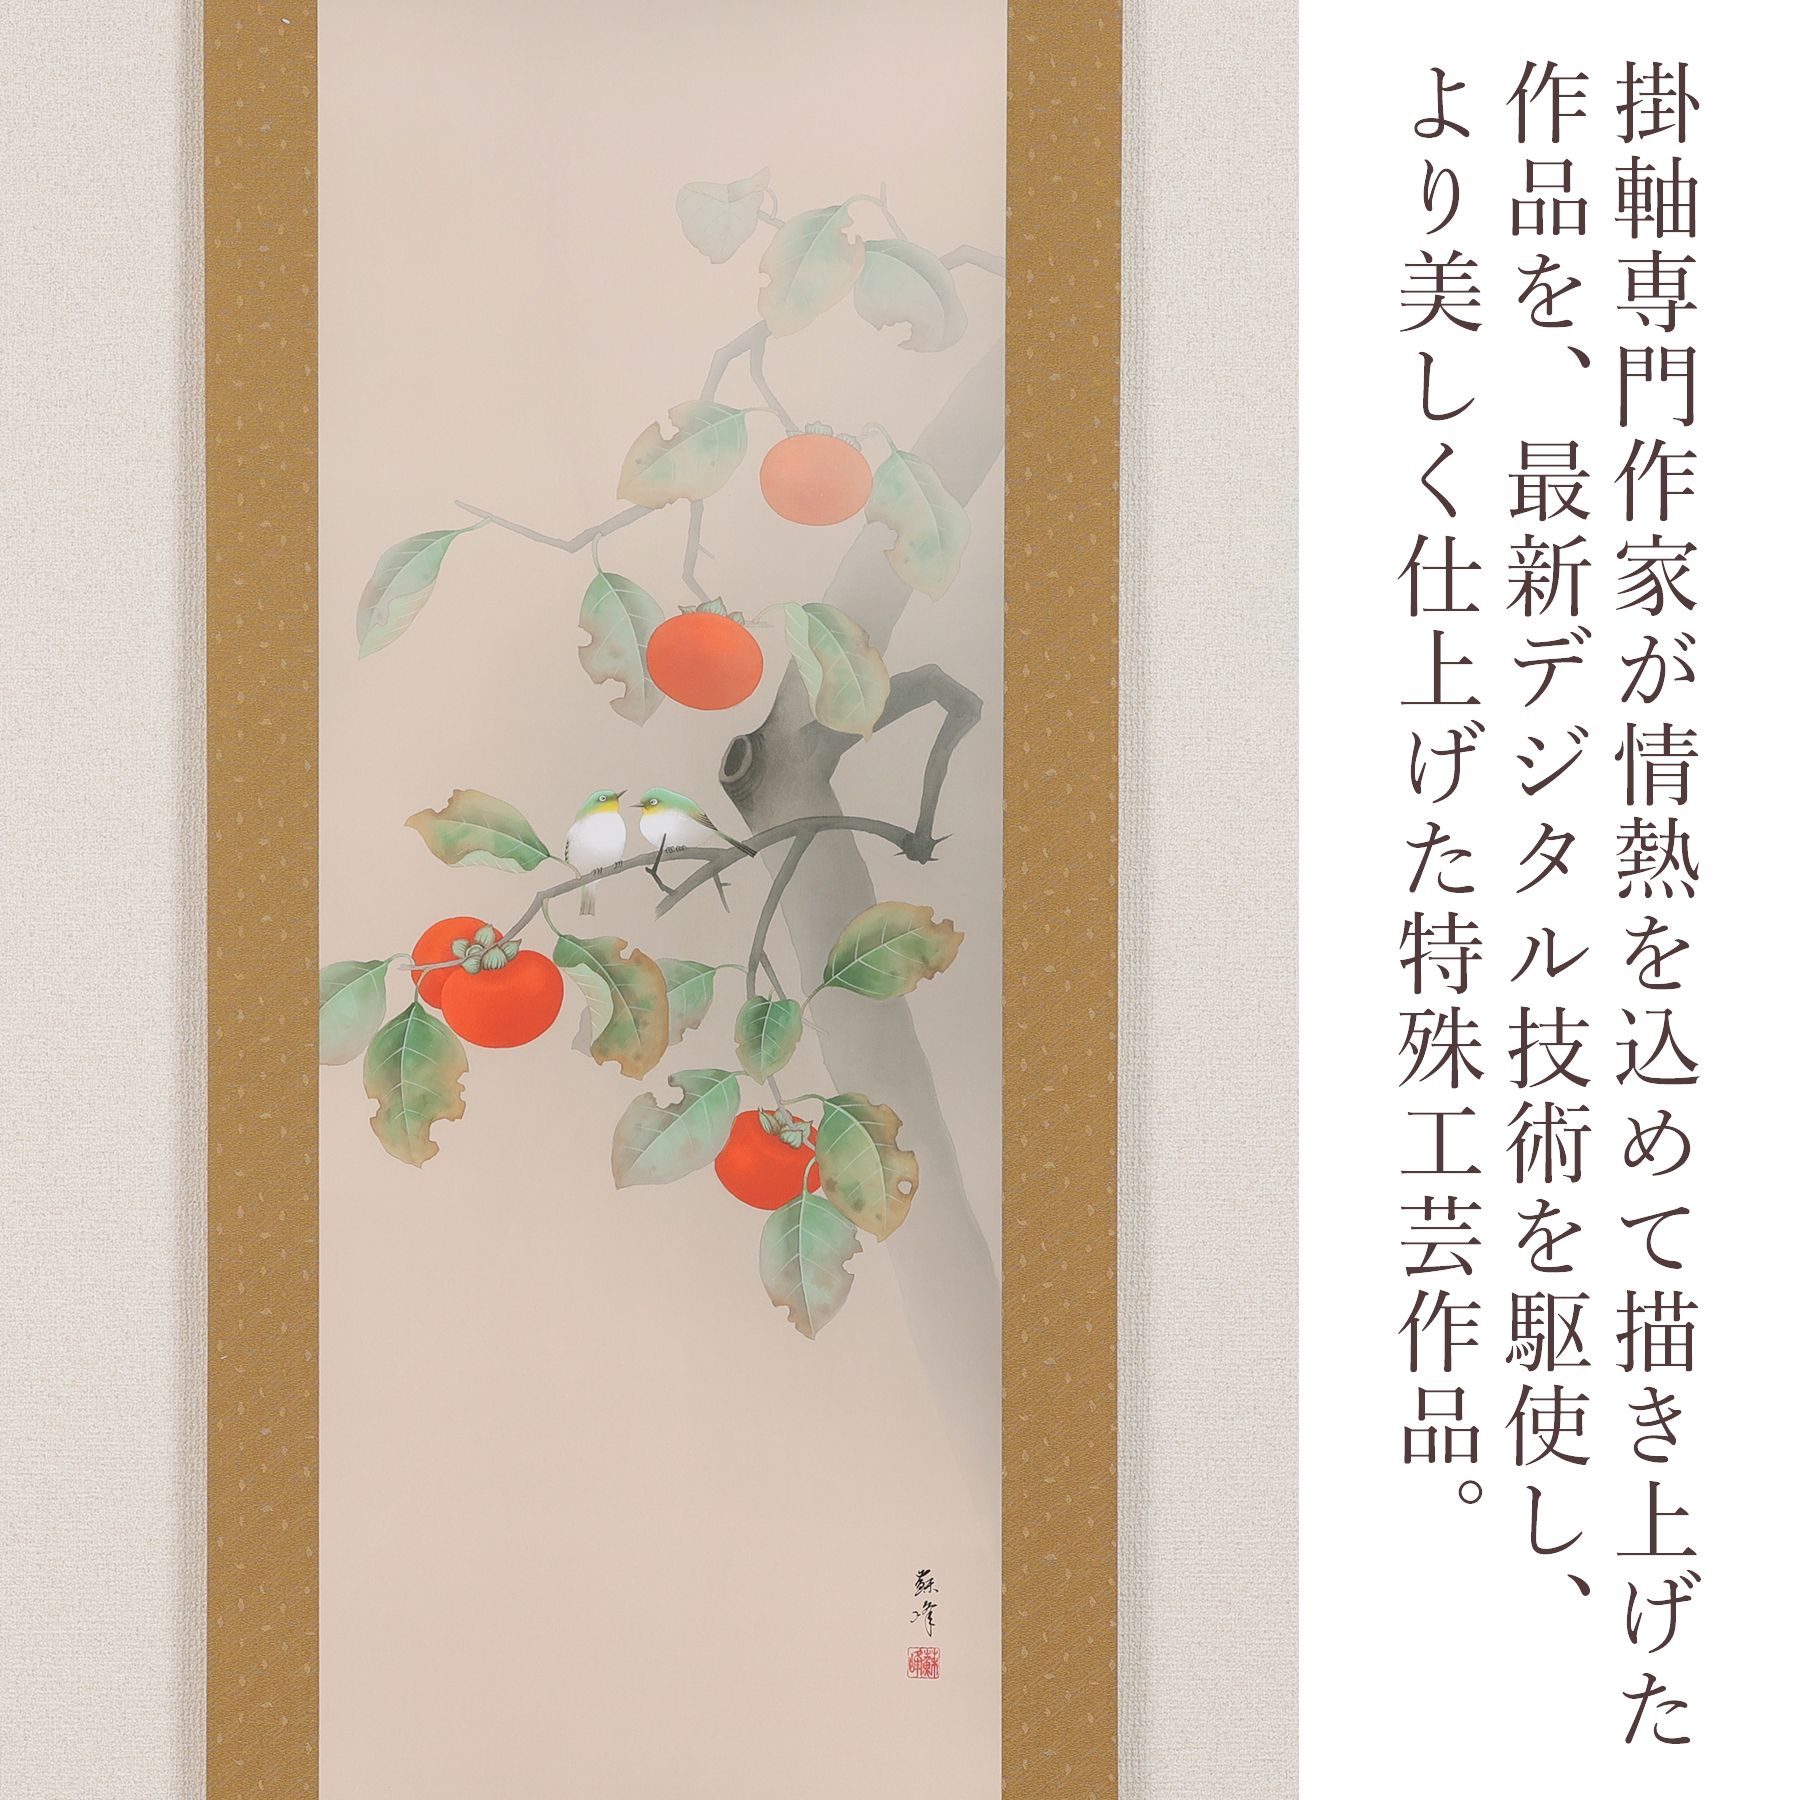 掛軸専門作家が情熱を込めて描き上げた
作品を、最新デジタル技術を駆使し、
より美しく仕上げた特殊工芸作品。
蘇峰